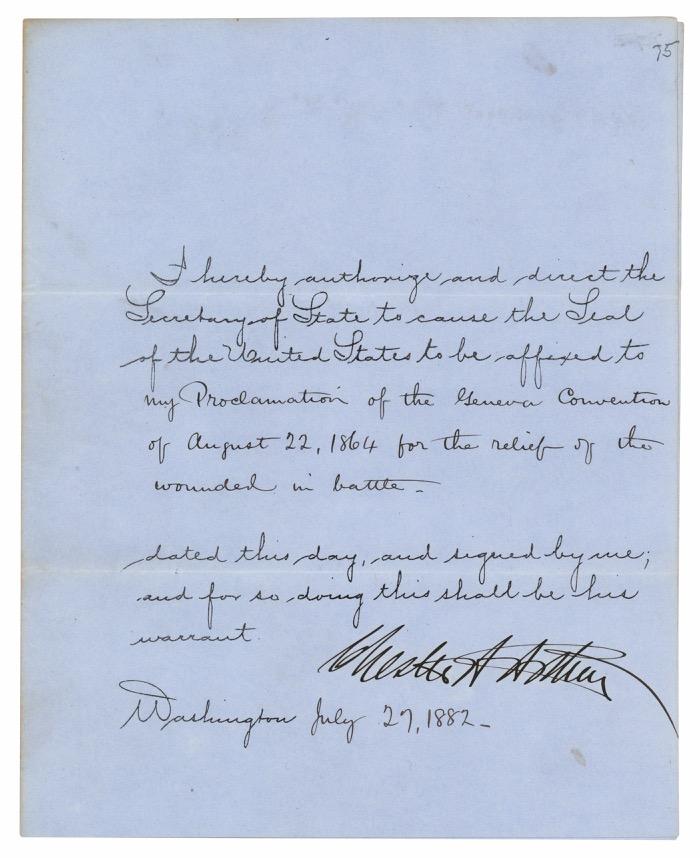 75
I hereby authorize and direct the
Secretary of State to cause the Seal
of the United States to be affixed to
my Proclamation of the Geneva Convention
of August 22, 1864 for the relief of the
wounded in battle -
dated this day, and signed by me;
and for so doing this shall be his
warrant.
Chester A Arthur
Washington July 27, 1882 -